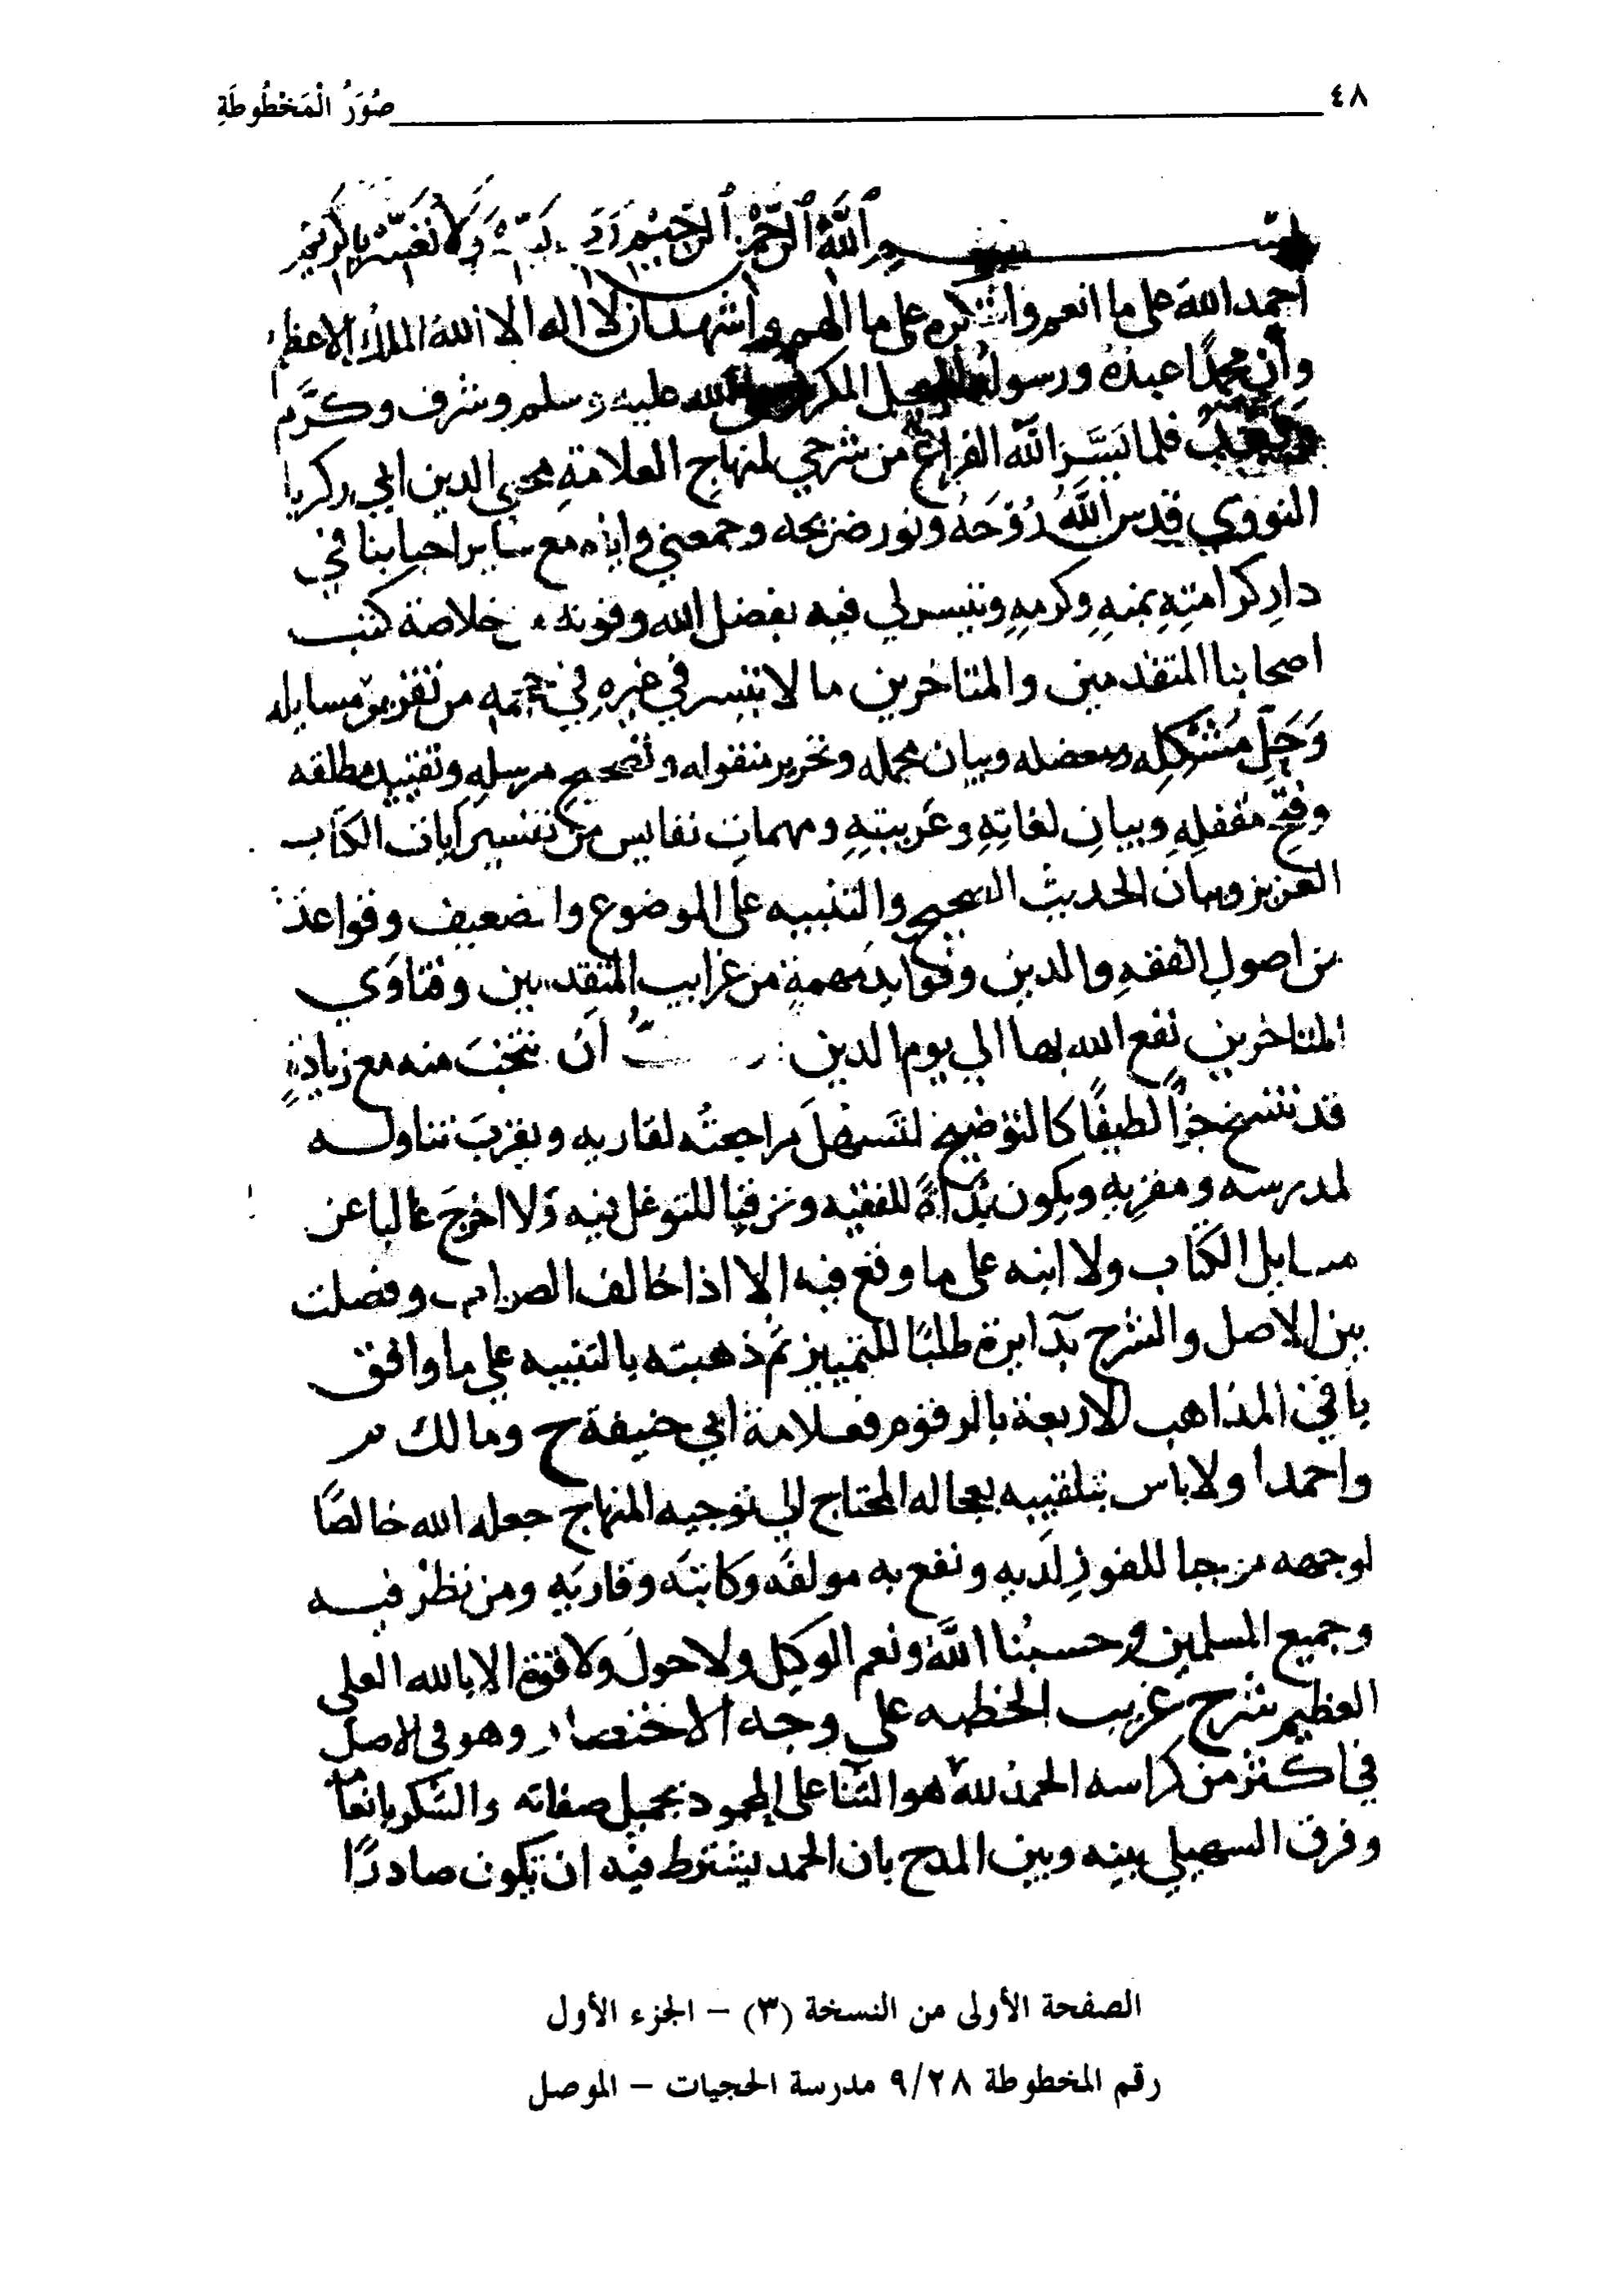 ٤٨ صُوَرُ الْمَخْطُوطَةِ
بسم اللَّهِ الرَّحْمَنِ الرَّحِيْمِ رَبِّ يَسِّرْ وَلَا تُعَسِّرْ يا كَرِيْمُ
احمد اللهَ على ما انعم واشكره على ما الهم واشهد ان لا اله الا اللهُ الملكُ الاعظم
وأن محمدًا عبدُهُ ورسوله المبجل المكرم صلى الله عليه وسلم وشرف وكرَّم
وَبَعْدُ فلما يَسَّرَ اللهُ الفراغ من شرحي لمنهاج العلامةِ محيي الدين ابي زكريا
النووي قدس اللَّهُ رُوْحَهُ ونور ضريحه وجمعني واياه مع ساير احبابنا في
دارِ كرامتِهِ بمنهِ وكرمِهِ وتيسر لي فيه بفضل الله وقوته خلاصة كتب
اصحابنا المتقدمين والمتاخرين ما لا تيسر في غيرِهِ في حجمه من تقرير مسايله
وَحَلِّ مُشْكِلِه ومعضله وبيان مجمله وتحرير منقوله وتصحيح مرسلِهِ وتقييد مطلقه
وفتح مقفلِهِ وبيانِ لغاتِهِ وعَربيتِهِ ومهماتِ نفايس من تفسير آيات الكتاب
العزيز وبيان الحديث الصحيح والتنبيه على الموضوع والضعيف وقواعد
من اصول الفقهِ والدين وفوايدَ مهمةٍ من غرايب المتقدمين وفتاوَي
المتاخرين نفع الله بها الي يوم الدين أن ننتخبَ منه مع زيادةٍ
قد تسنح جزأً لطيفًا كالتوضيح لتسهلَ مراجعتُه لقاريه ويقربَ تناوله
لمدرسه ومقريه ويكون بُدْأَةً للفقيه وترقيا للتوغل فيه وَلا اخرجَ غالبا عن
مسايل الكتاب ولا انبه على ما وقع فيه الا اذا خالف الصواب وفصلت
بين الاصل والشرح بدايرة طلبًا للتمييز ثم ذهبته بالتنبيه على ما وافق
باقي المذاهب الاربعة بالرقوم فعلامة ابي حنيفة ح ومالك م
واحمد ا ولا باس بتلقيبه بعجاله المحتاج الي توجيه المنهاج جعله الله خالصًا
لوجهه موجبا للفوزِ لَديه ونفع به مولفَه وكاتبَه وقاريَه ومن نظر فيه
وجميع المسلمين وحسبُنا اللَّهُ ونعم الوكيل ولا حول ولا قوة الا بالله العلي
العظيم شرح غريب الخطبه على وجه الاختصار وهو في الاصل
في اكثر من كراسه الحمد لله هو الثنا على المحمود بجميل صفاته والشكر بانعامه
وفرق السهيلي بينه وبين المدح بان الحمد يشترط فيه ان يكون صادرًا
الصفحة الأولى من النسخة (٣) – الجزء الأول
رقم المخطوطة ٩/٢٨ مدرسة الحجيات – الموصل